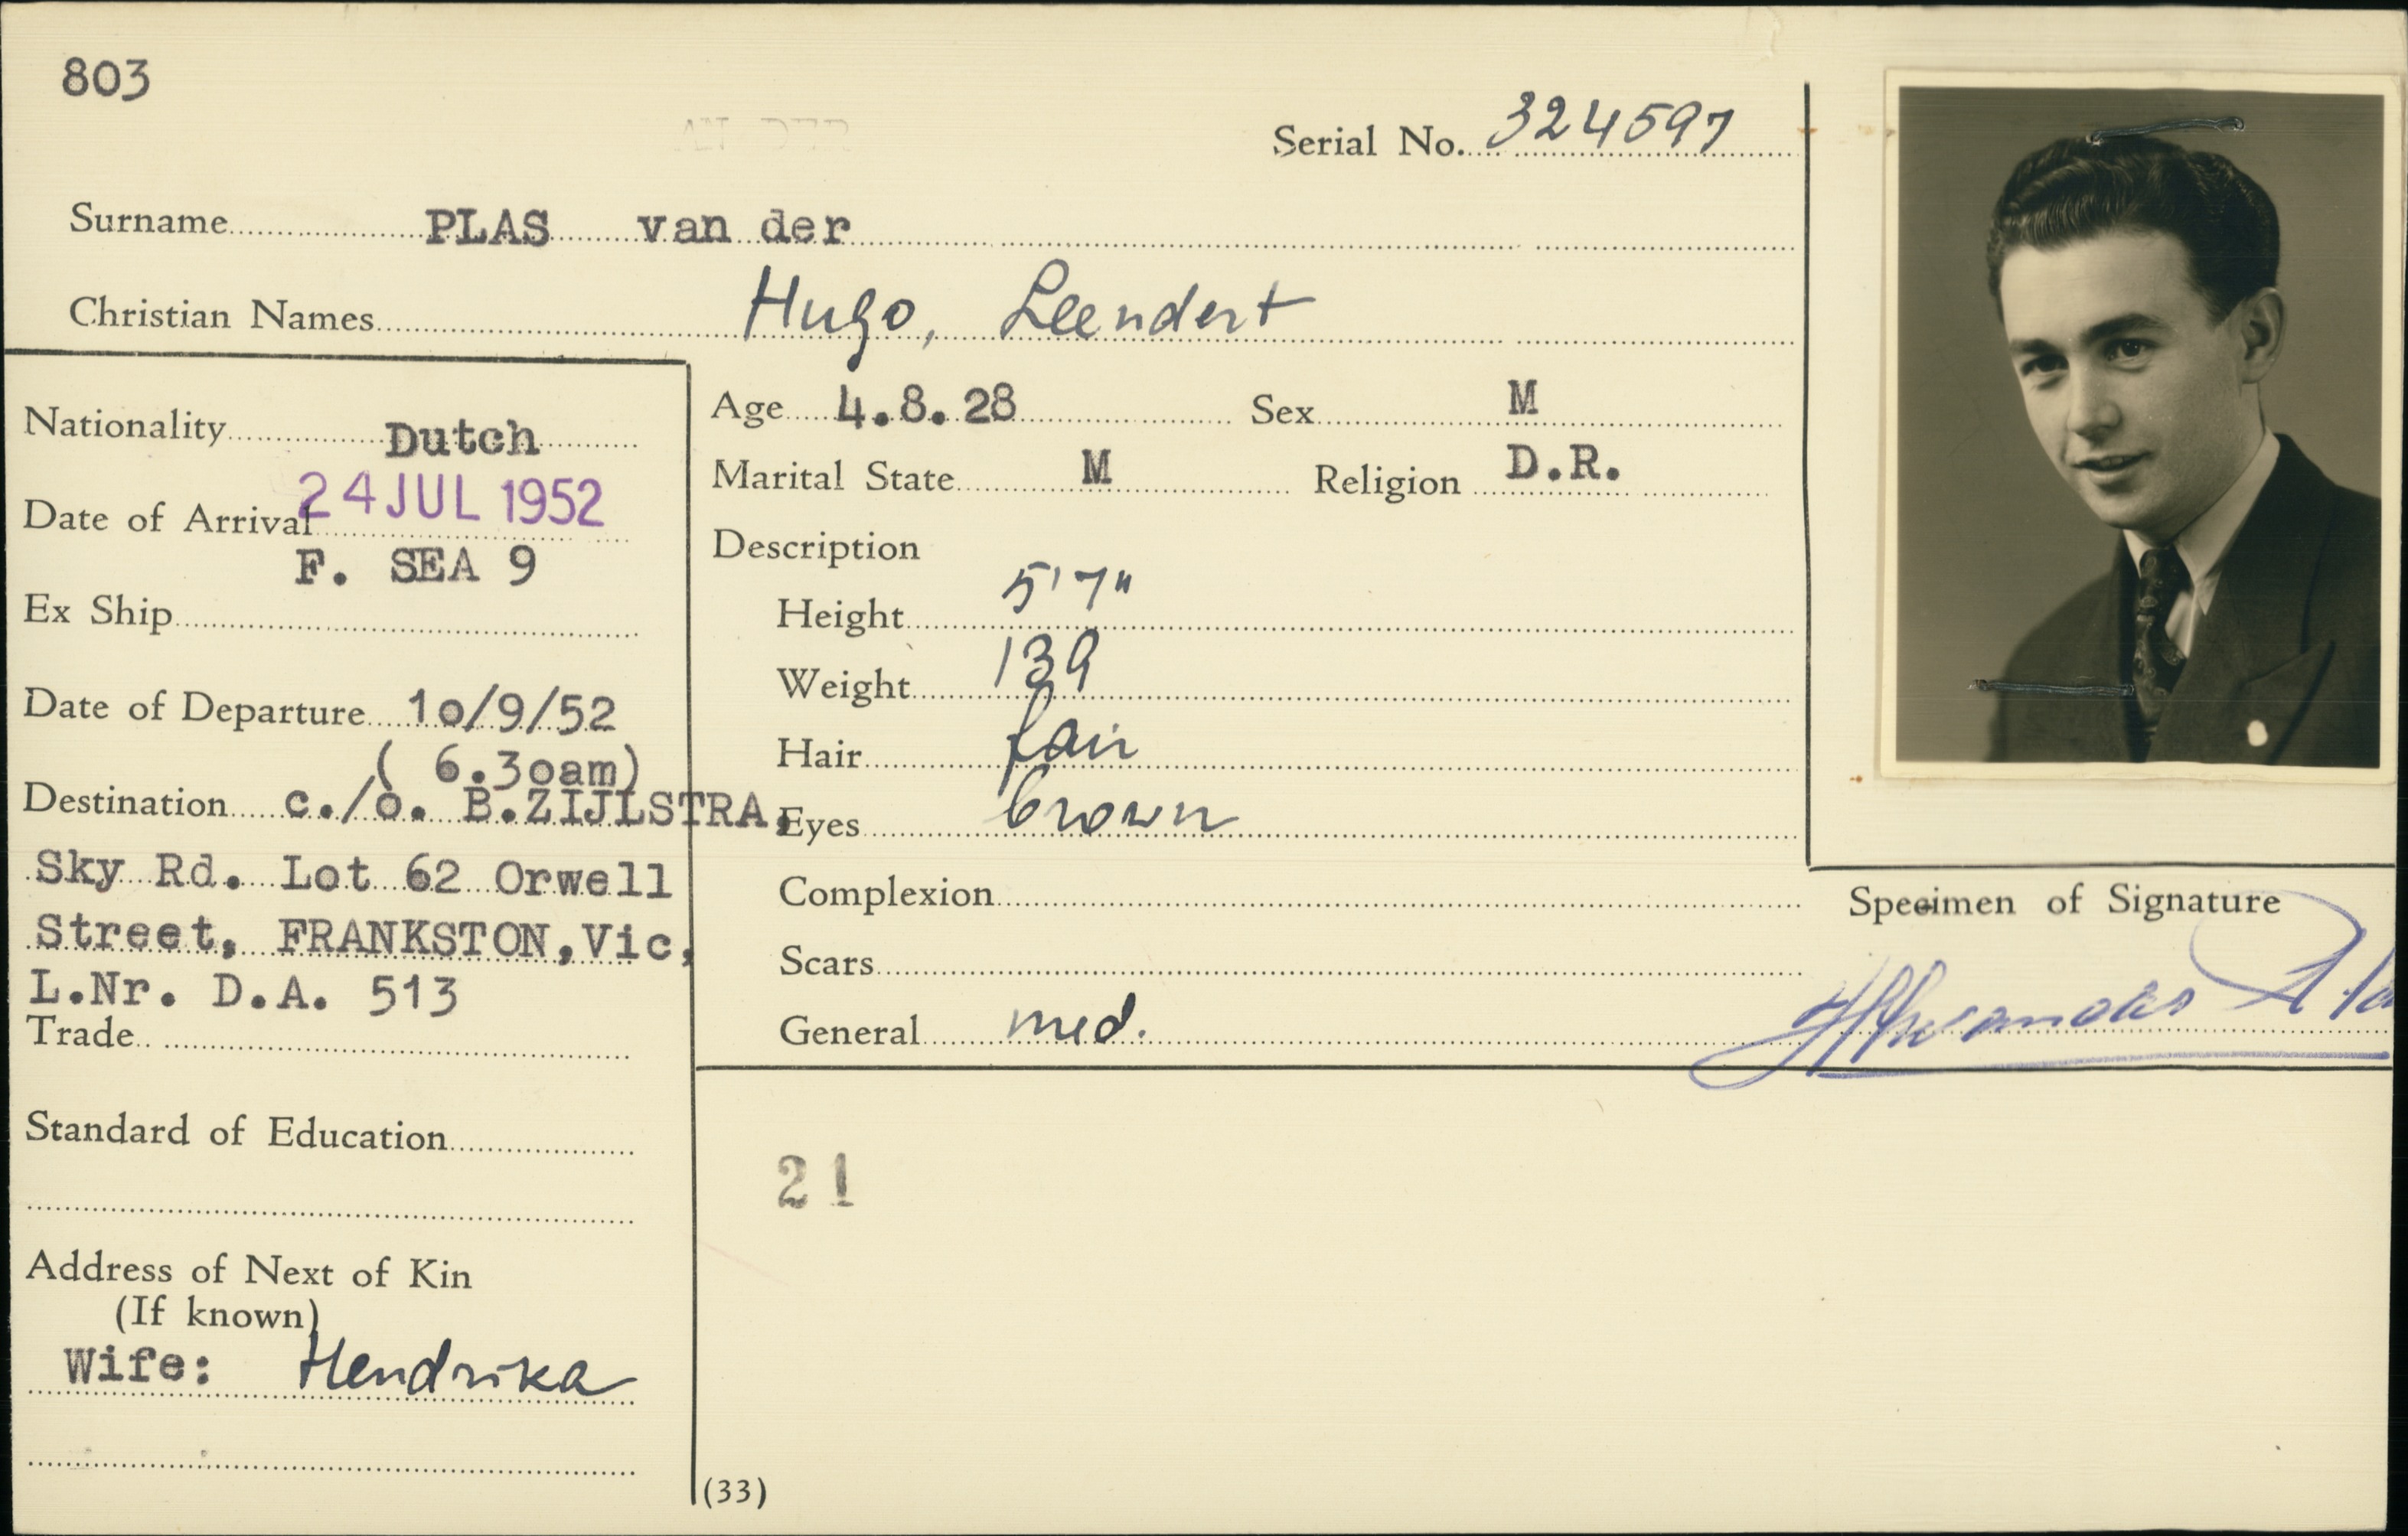 803
Serial No. 324597
Surname PLAS van der
Christian Names Hugo, Leendert
Nationality Dutch
Date of Arrival 24 JUL 1952
F. SEA 9
Ex Ship
Date of Departure 10/9/52
( 6.30am)
Destination c./o. B.ZIJLSTRA,
Sky Rd. Lot 62 Orwell
Street, FRANKSTON,Vic,
L.Nr. D.A. 513
Trade
Standard of Education
Address of Next of Kin
(If known)
Wife: Hendrika
Age 4.8.28 Sex M
Marital State M Religion D.R.
Description
Height 5'7"
Weight 139
Hair fair
Eyes brown
Complexion
Scars
General med.
Specimen of Signature
21
(33)